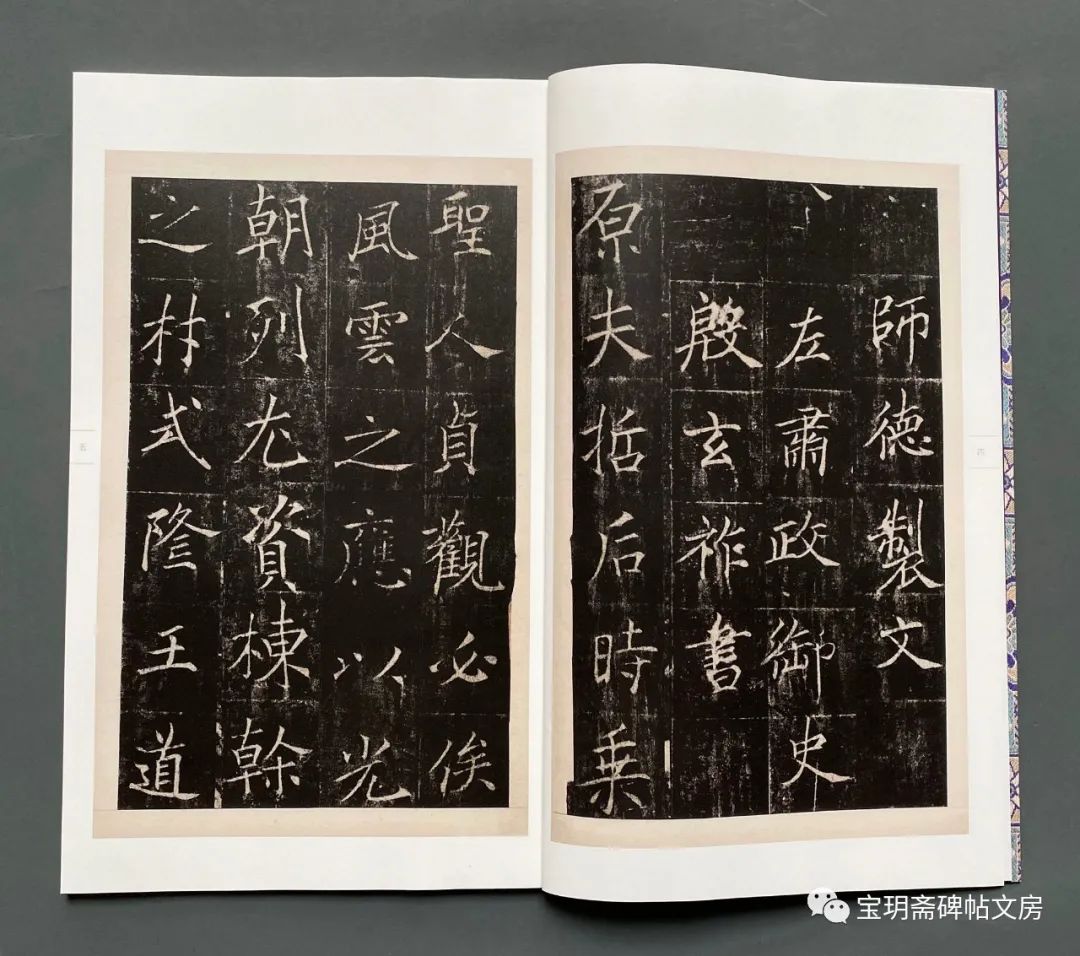 師德製文
左肅政御史
殷玄祚書
原夫哲后時乗
四
聖人貞觀必俟
風雲之應以光
朝列尤資棟幹
之材式隆王道
五
宝玥斋碑帖文房